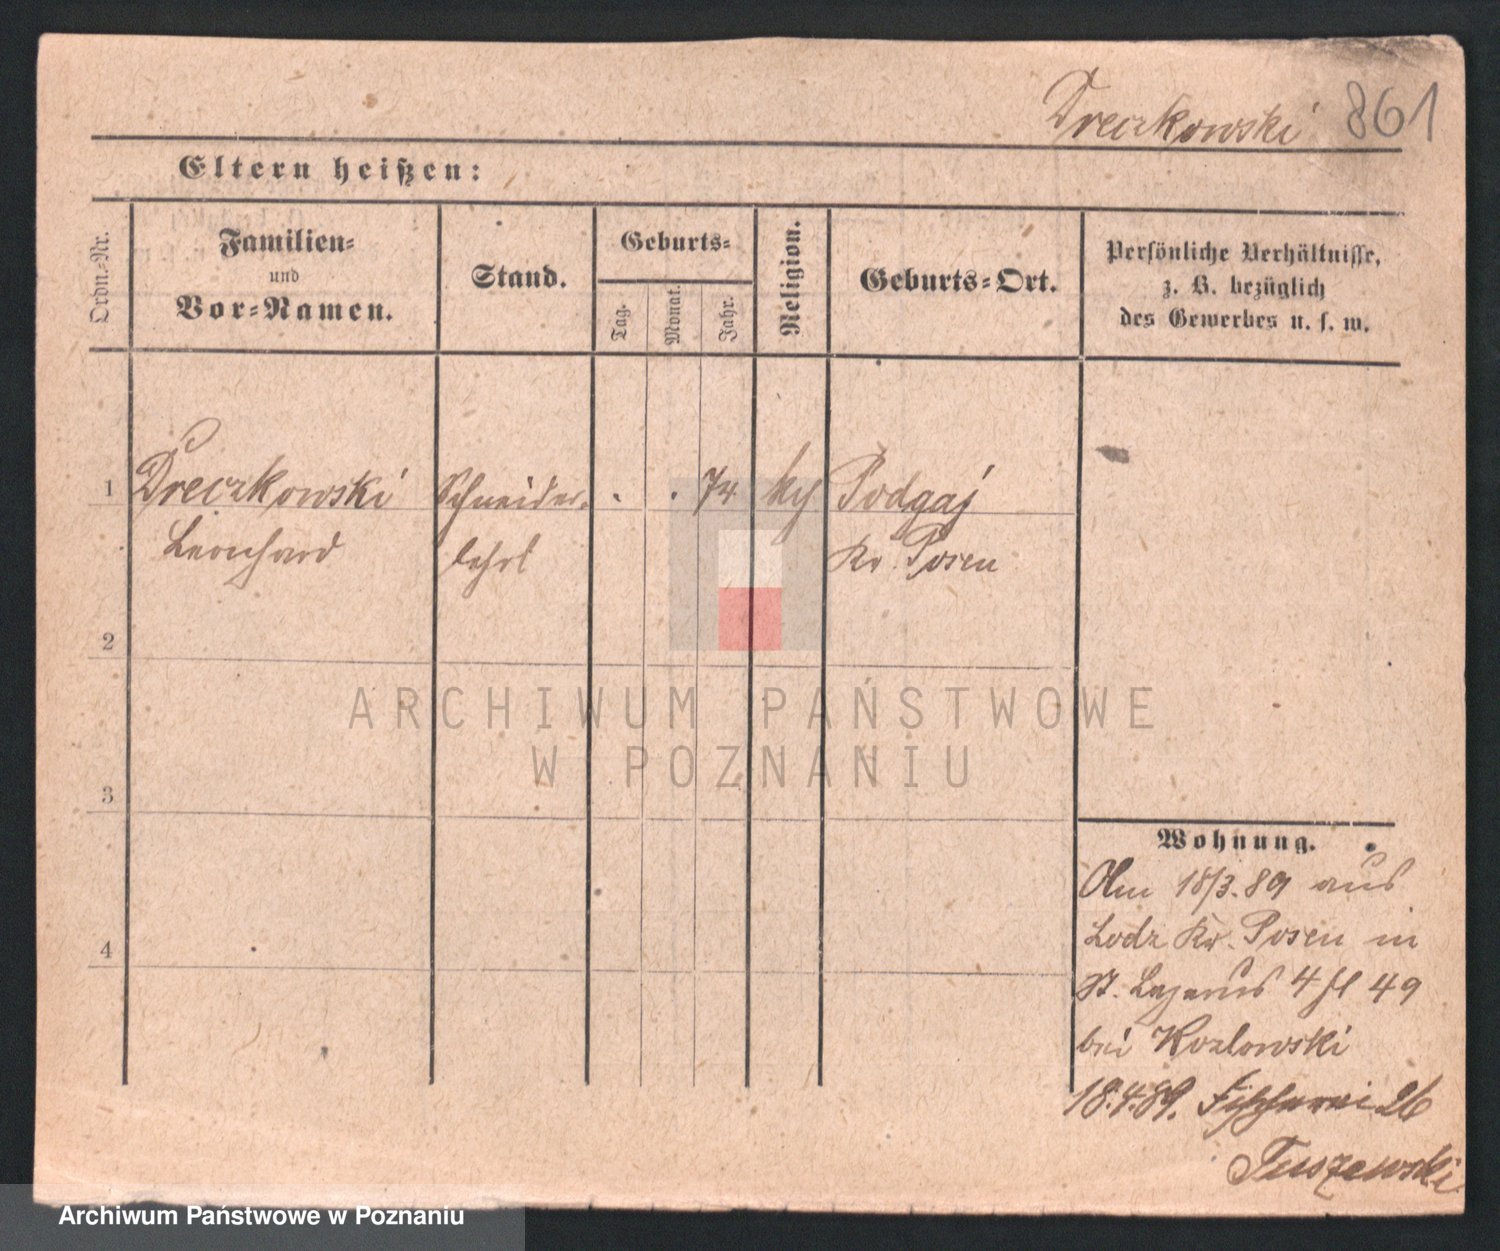 Dreczkowski 861
Eltern heißen:
Ordn.-Nr.
Familien-
und
Vor-Namen.
Stand.
Geburts-
Tag.
Monat.
Jahr.
Religion.
Geburts-Ort.
Persönliche Verhältnisse,
z. B. bezüglich
des Gewerbes u. s. w.
1 Dreczkowski Schneider- . . 74 Podgaj
Leonhard lehrl Kr. Posen
2
3
4
Wohnung.
18/3.89 aus
Lodz Kr. Posen in
St. Lazarus 4 49
bei Kozlowski
18.4.89. Fischerei 26
Tuszewski
ARCHIWUM PAŃSTWOWE
W POZNANIU
Archiwum Państwowe w Poznaniu